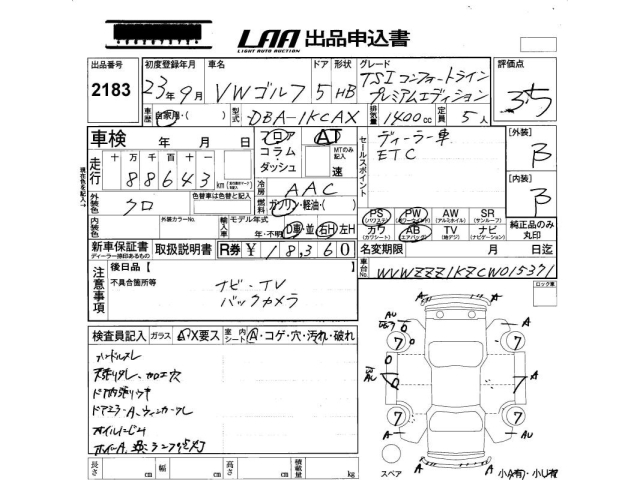 LAA 出品申込書
LIGHT AUTO AUCTION
出品番号 初度登録年月 車名 ドア 形状 グレード 評価点
2183 23年9月 VWゴルフ 5 HB TSIコンフォートライン プレミアムエディション
車歴 自家用・( ) 型式 DBA-1KCAX 排気量 1400cc 定員 5人
車検 年 月 日 フロア AT セールスポイント ディーラー車 [外装] B
コラム・ダッシュ MTのみ記入 速 ETC
走行 十万千百十 88643 km
冷房 AAC [内装] B
外装色 クロ 色替車は色替と記入 燃料 ガソリン・軽油・( )
PS (パワステ) PW (パワーウインド) AW (アルミホイル) SR (サンルーフ)
内装色 外装カラーNo. 輸入車 モデル年式 年・不明 D車・並 右H・左H カワ (カワシート) AB (エアバッグ) TV (地デジ) ナビ (ナビゲーション) 純正品のみ丸印
新車保証書 ディーラー捺印あるもの 取扱説明書 R券 ¥18,360 名変期限 月 日迄
注意事項 後日品【 車台No. WVWZZZ1KZCW015371
不具合箇所等 ナビ・TV ロック車
バックカメラ
検査員記入 ガラス A X要ス 室内シート A・コゲ・穴・汚れ・破れ
ハンドルスレ
天張りタレ、加工穴
ドア内張りウキ
ドアミラーA、ウィンカーワレ
オイルにじみ
長さ cm 幅 cm 高さ cm 積載量 kg
スペア 小A有)・小U有
AU
A
7
7
A
AU
A
7
7
A
A